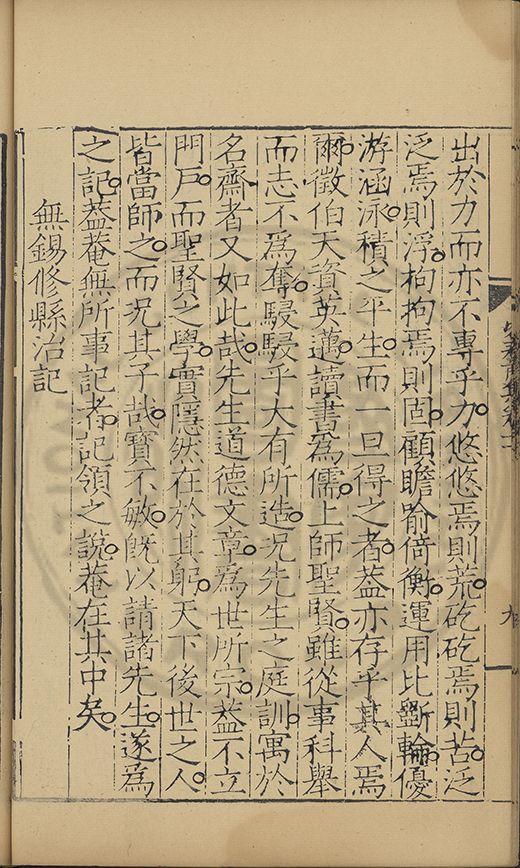 出於力而亦不專乎力悠悠焉則荒矻矻焉則苦泛
泛焉則浮拘拘焉則固顧瞻喻倚衡運用比斲輪優
游涵泳積之平生而一旦得之者葢亦存乎其人焉
爾徵伯天資英邁讀書爲儒上師聖賢雖從事科舉
而志不爲奪駸駸乎大有所造况先生之庭訓寓於
名齋者又如此哉先生道德文章爲世所宗葢不立
門戶而聖賢之學實隱然在於其躬天下後世之人
皆當師之而况其子哉寳不敏旣以請諸先生遂爲
之記葢菴無所事記者記領之說菴在其中矣
無錫修縣治記
九